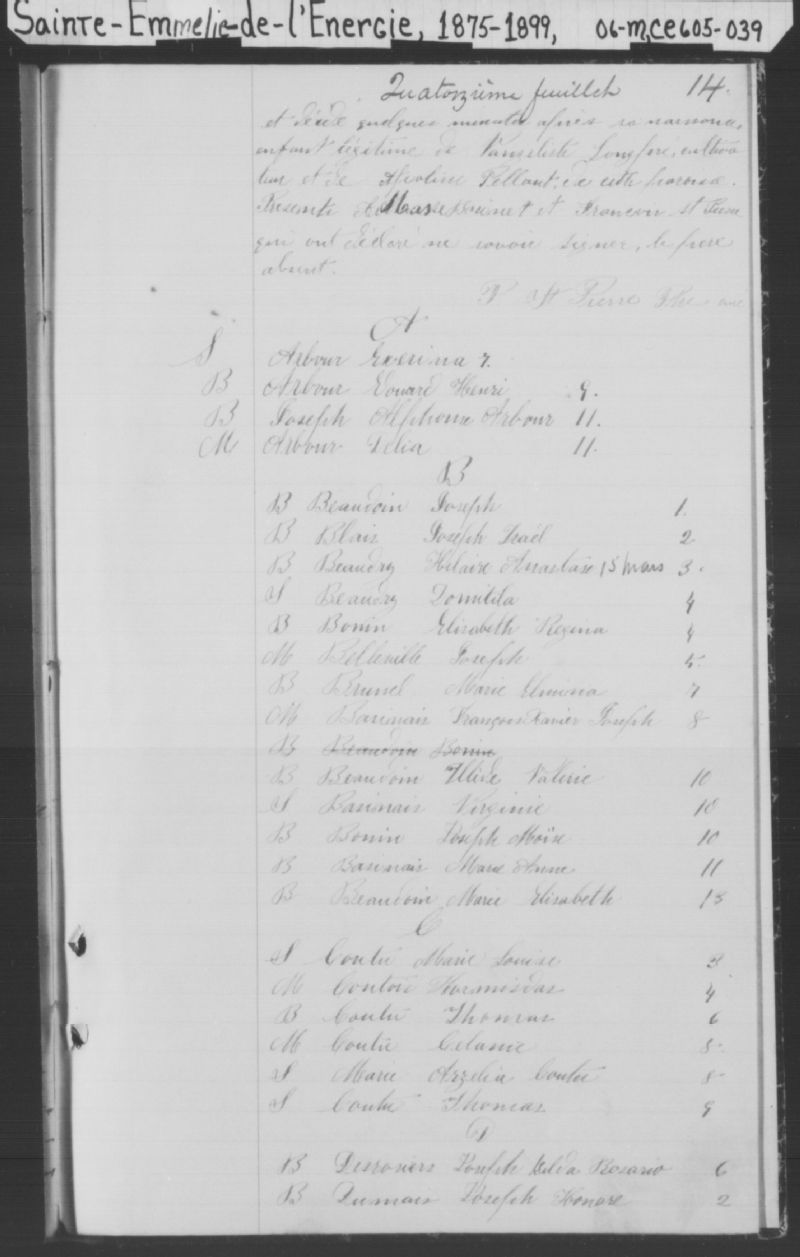 Sainte-Emmelie-de-l'Energie, 1875-1899, 06-M,CE605-039
Quatorzième feuillet 14.
et décédé quelques minutes après sa naissance,
enfant légitime de Vangeliste Longpré, cultiva
teur et de Apoline Pellant, de cette paroisse.
Présents et François St Pierre
qui ont déclaré ne savoir signer, le père
absent.
P St Pierre Ptre curé
A
S Arbour Exerina 7.
B Arbour Edouard Henri 9.
B Joseph Alphonse Arbour 11.
M Arbour Delia 11.
B
B Beaudoin Joseph 1.
B Blais Joseph Israël 2
B Beaudry Hilaire Anastase 15 mars 3.
S Beaudry Domitila 4
B Bonin Elisabeth Regina 4
M Belleville Joseph 5.
B Brunel Marie Elmina 7
M Basinais François Xavier Joseph 8
B Beaudoin Bonin
B Beaudoin Valérie 10
S Basinais Virginie 10
B Bonin Joseph Moïse 10
B Basinais Marie Anne 11
B Beaudoin Marie Elisabeth 13
C
S Coutu Marie Louise 3
M Coutu Hormisdas 4
B Coutu Thomas 6
M Coutu Celanie 8.
S Marie Arzelia Coutu 8
S Coutu Thomas 9
D
B Desrosiers Joseph Gelda Rosario 6
B Dumais Joseph Honore 2